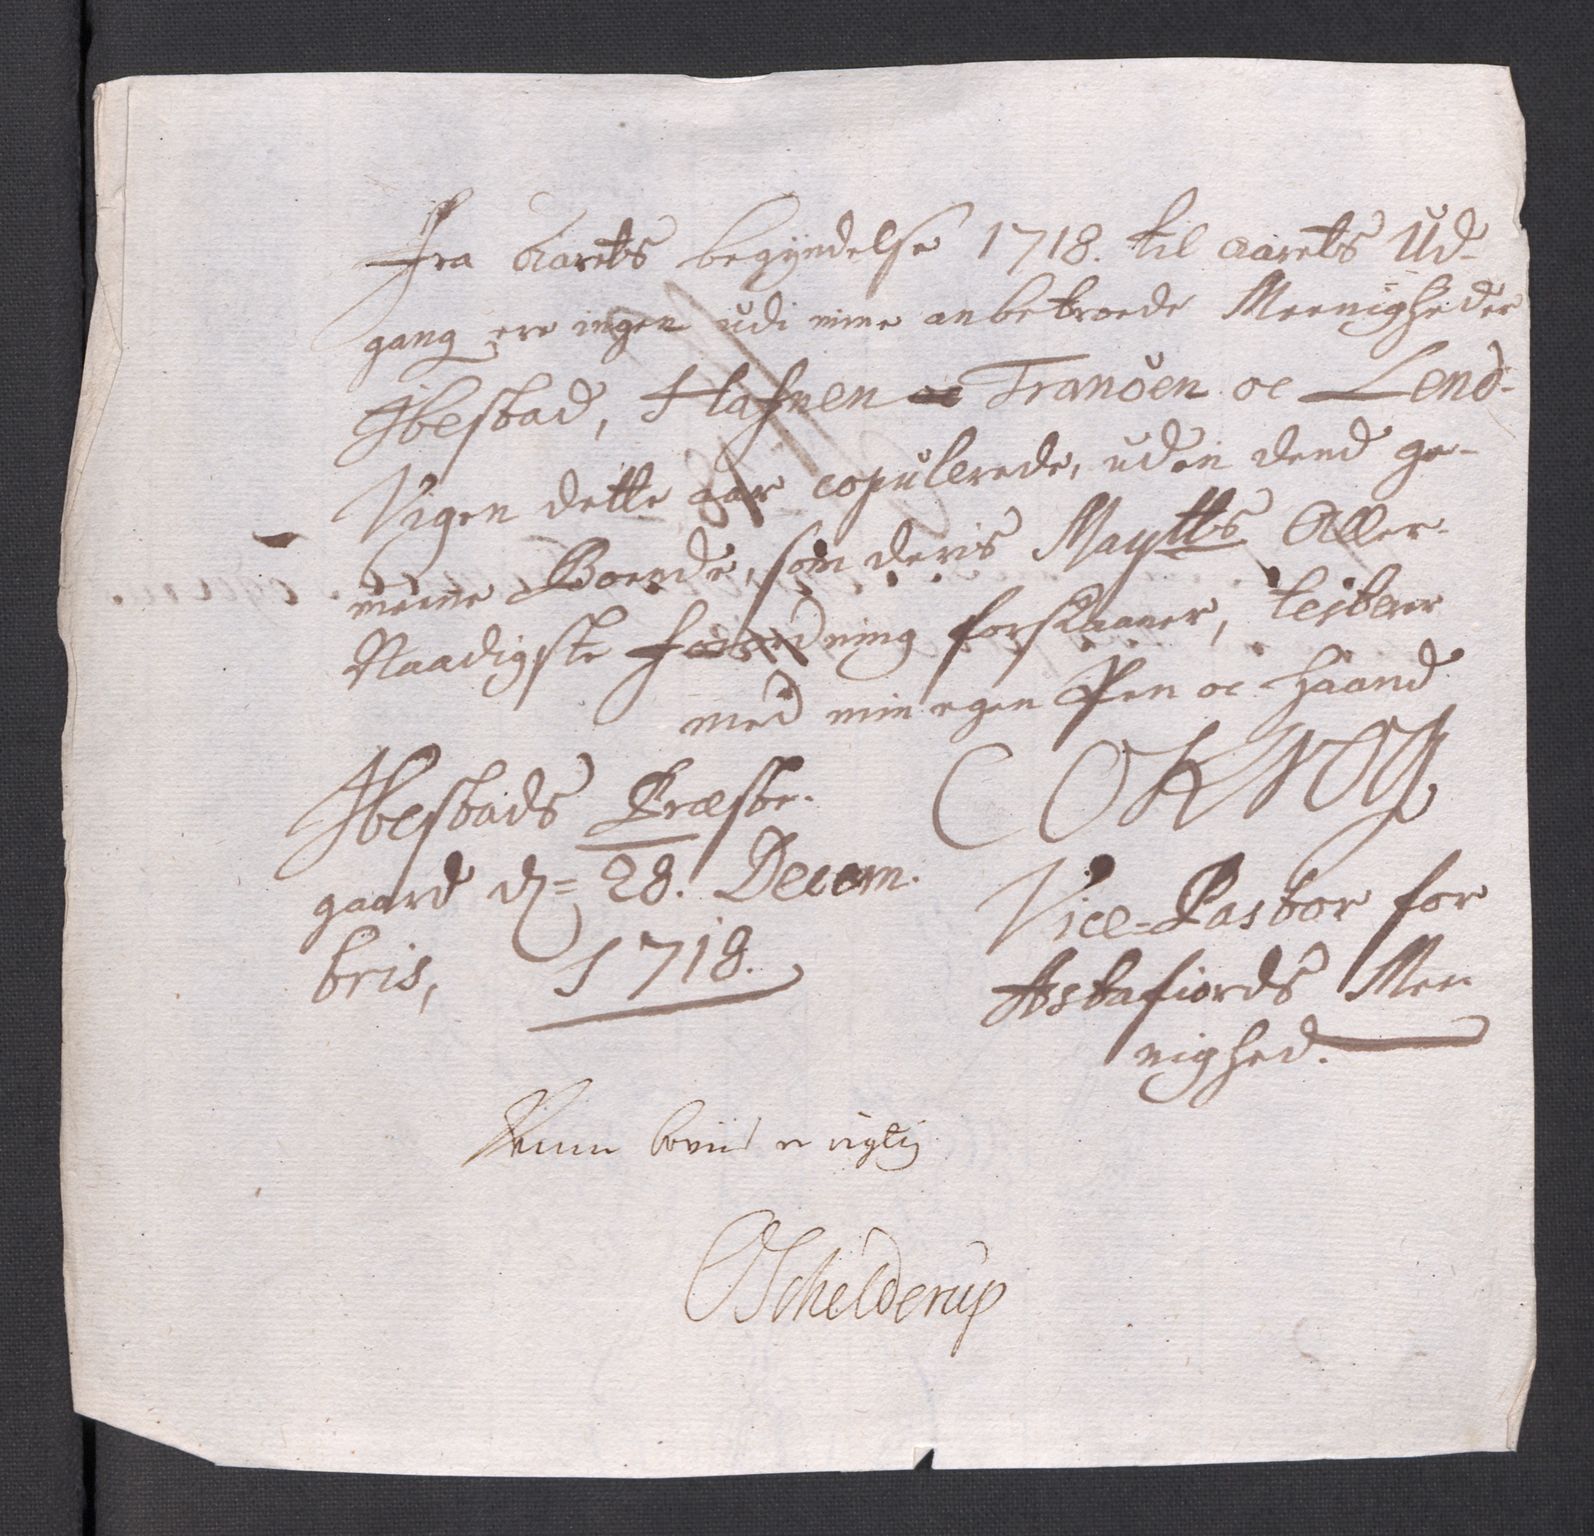 Fra Aarets begyndelse 1718. til aarets Ud-
gang ere ingen udi mine anbetroede Meenigheder
Ibestad, Hafnen oc Tranöen oc Lend-
Vigen dette aar copulerede, uden dend ge-
meene Boende, som deris Maytts Aller-
Naadigste Forordning forskaaner, testerer
med min egen Pen oc Haand
Ibestads Præste-
gaard d= 28. Decem-
bris, 1718.
Vice-Pastor for
Astafiords Mee-
nighed.
rigtig
OSchelderup